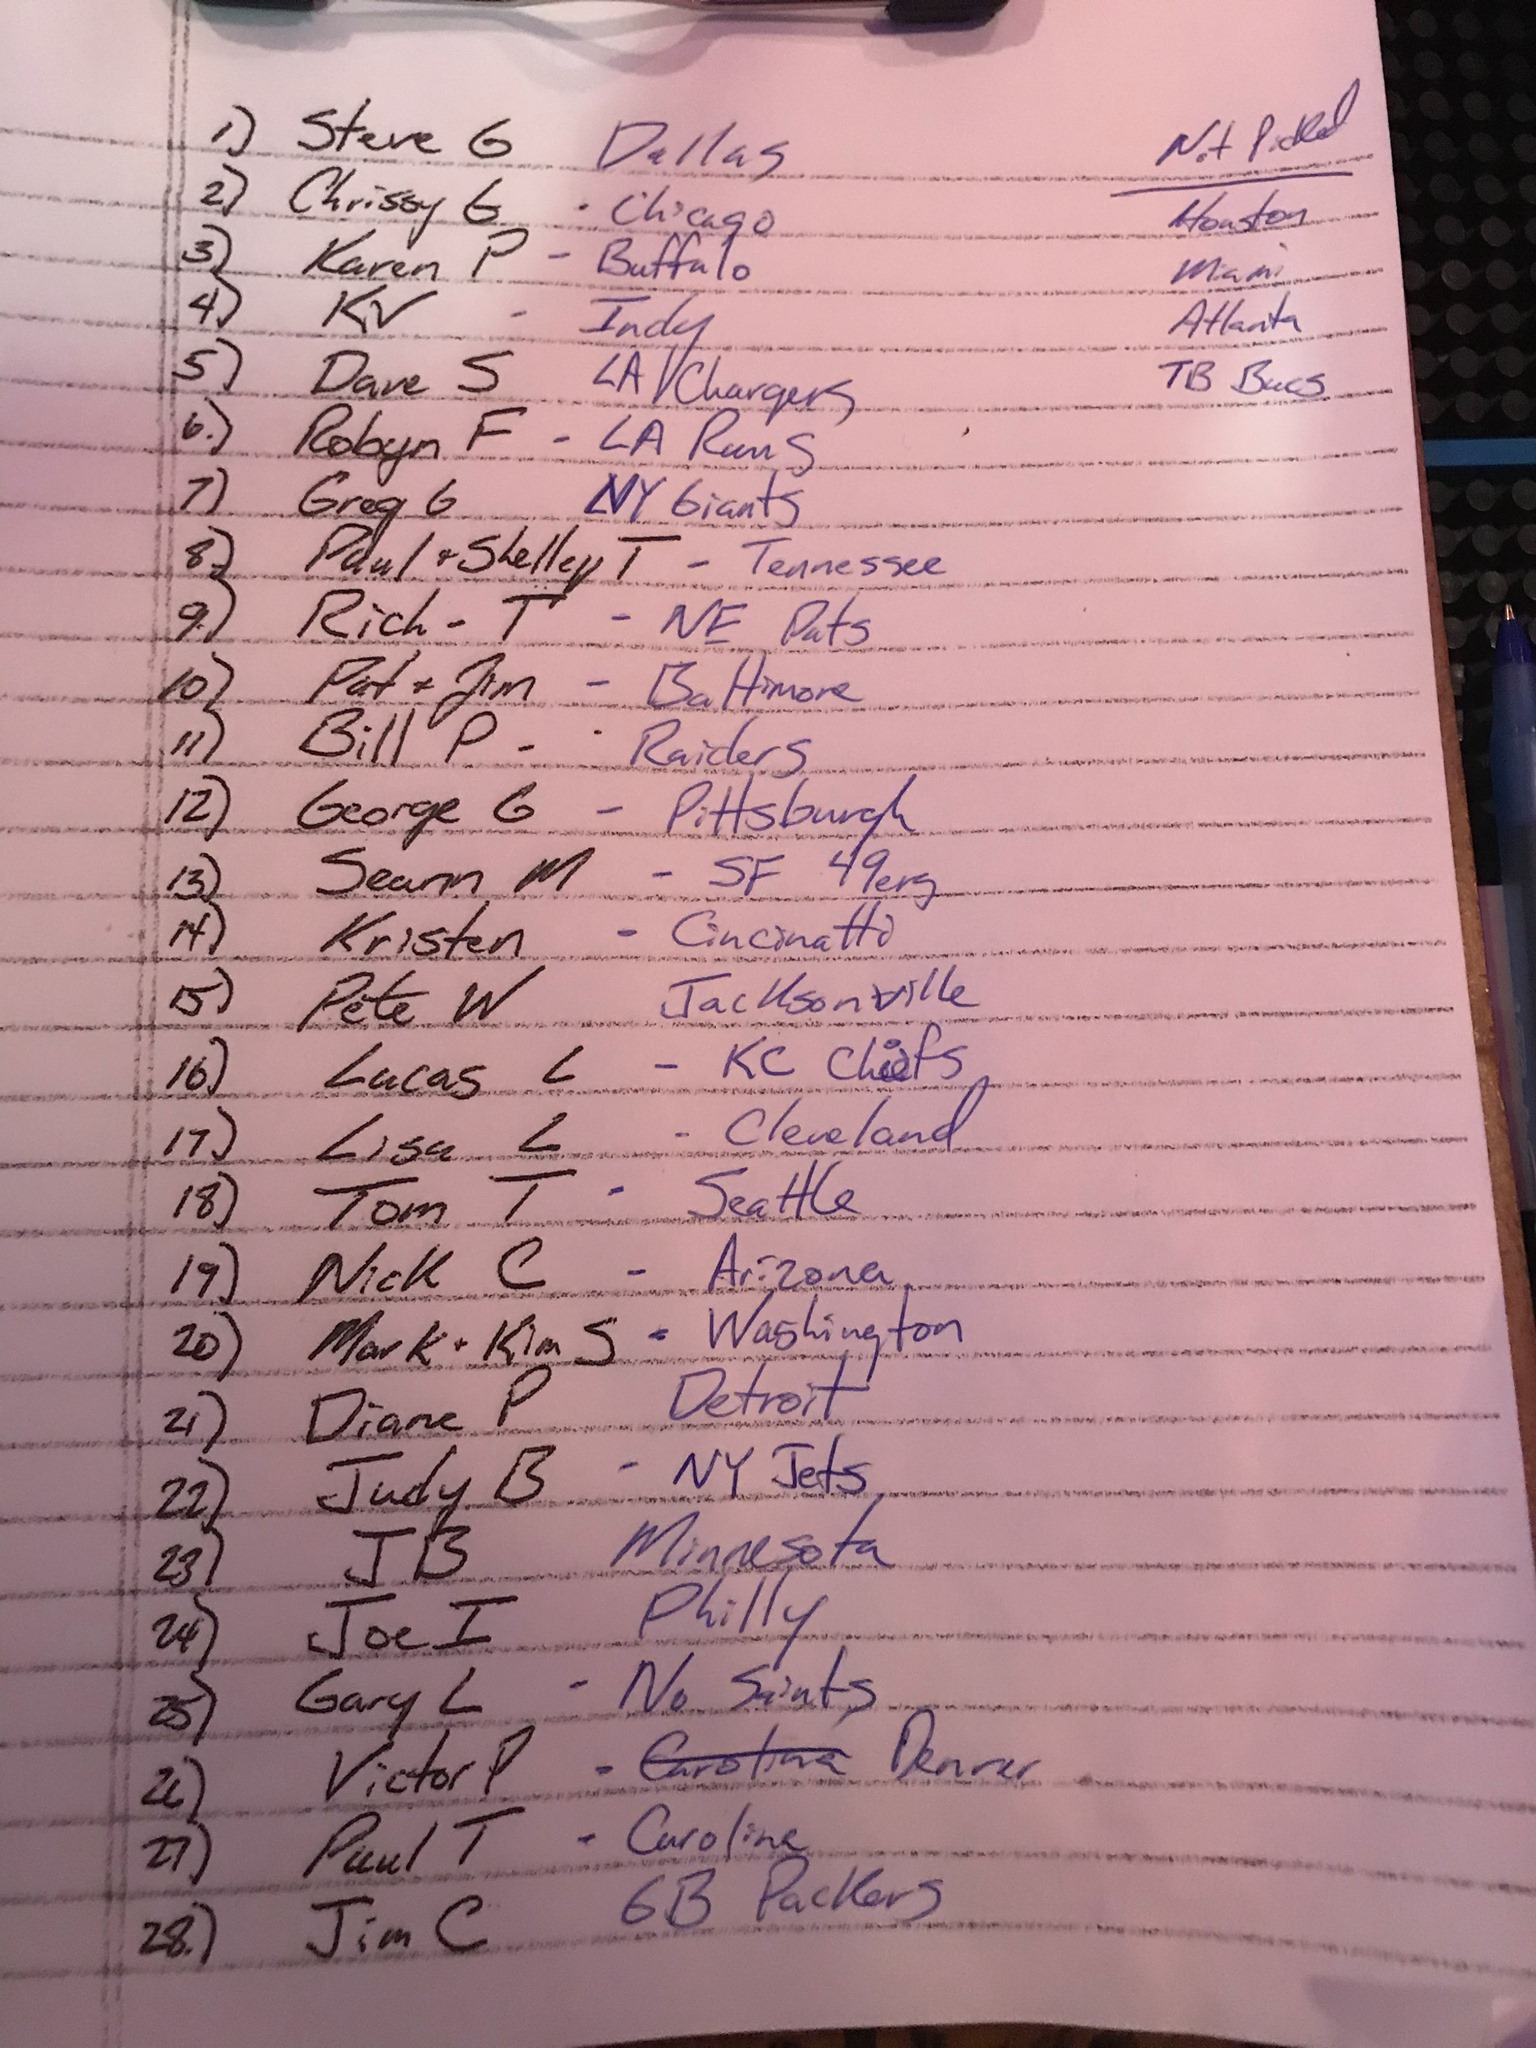 1) Steve G Dallas
2) Chrissy G - Chicago
3) Karen P - Buffalo
4) KV - Indy
5) Dave S LA/Chargers
6.) Robyn F - LA Rams
7) Greg G NY Giants
8.) Paul + Shelley T - Tennessee
9.) Rich - T - NE Pats
10) Pat + Jim - Baltimore
11) Bill P - Raiders
12) George G - Pittsburgh
13) Seann M - SF 49ers
14) Kristen - Cincinatti
15) Pete W Jacksonville
16) Lucas L - KC Chiefs
17) Lisa L - Cleveland
18) Tom T - Seattle
19) Nick C - Arizona
20) Mark + Kim S - Washington
21) Diane P Detroit
22) Judy B - NY Jets
23) JB Minnesota
24) Joe I Philly
25) Gary L - No Saints
26) Victor P - Carolina Denver
27) Paul T - Carolina
28.) Jim C GB Packers
Not Picked
Houston
Miami
Atlanta
TB Bucs